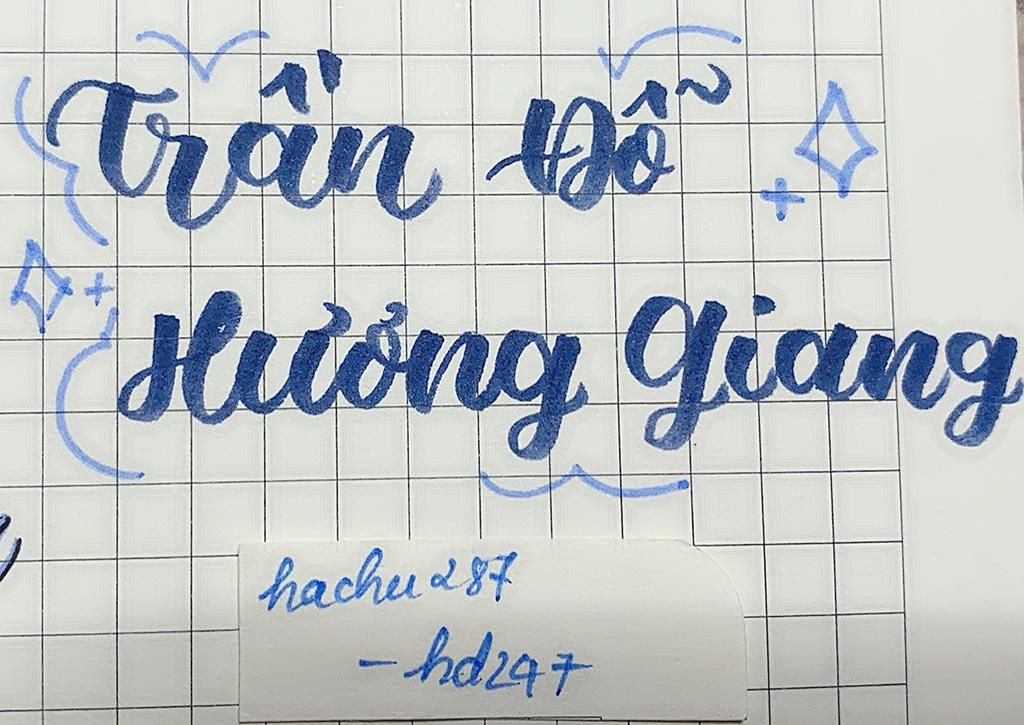 Trần Đỗ
Hưởng Giang
hachu287
- hd247